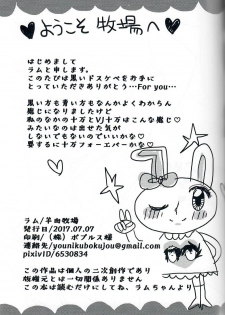 ♥ようこそ 牧場へ♥
はじめまして
ラムと申します。
このたびは黒いドスケベをお手に
とっていただきありがとう…For you…
黒い方も青い方もなんかよくわからん
感じになりましたけど
私のなかの十万とVJ十万はこんな感じ♡
みたいなのは出せた気が
しないでもないのでいいかな♡
要するに十万フォーエバーかな♡
ラム/羊肉牧場
発行日/2017.07.07
印刷/(株)ポプルス様
連絡先/younikubokujou@gmail.com
pixivID/6530834
この作品は個人の二次創作であり
版権元とは一切関係ありません
この本は読むだけにしてね、ラムちゃんより